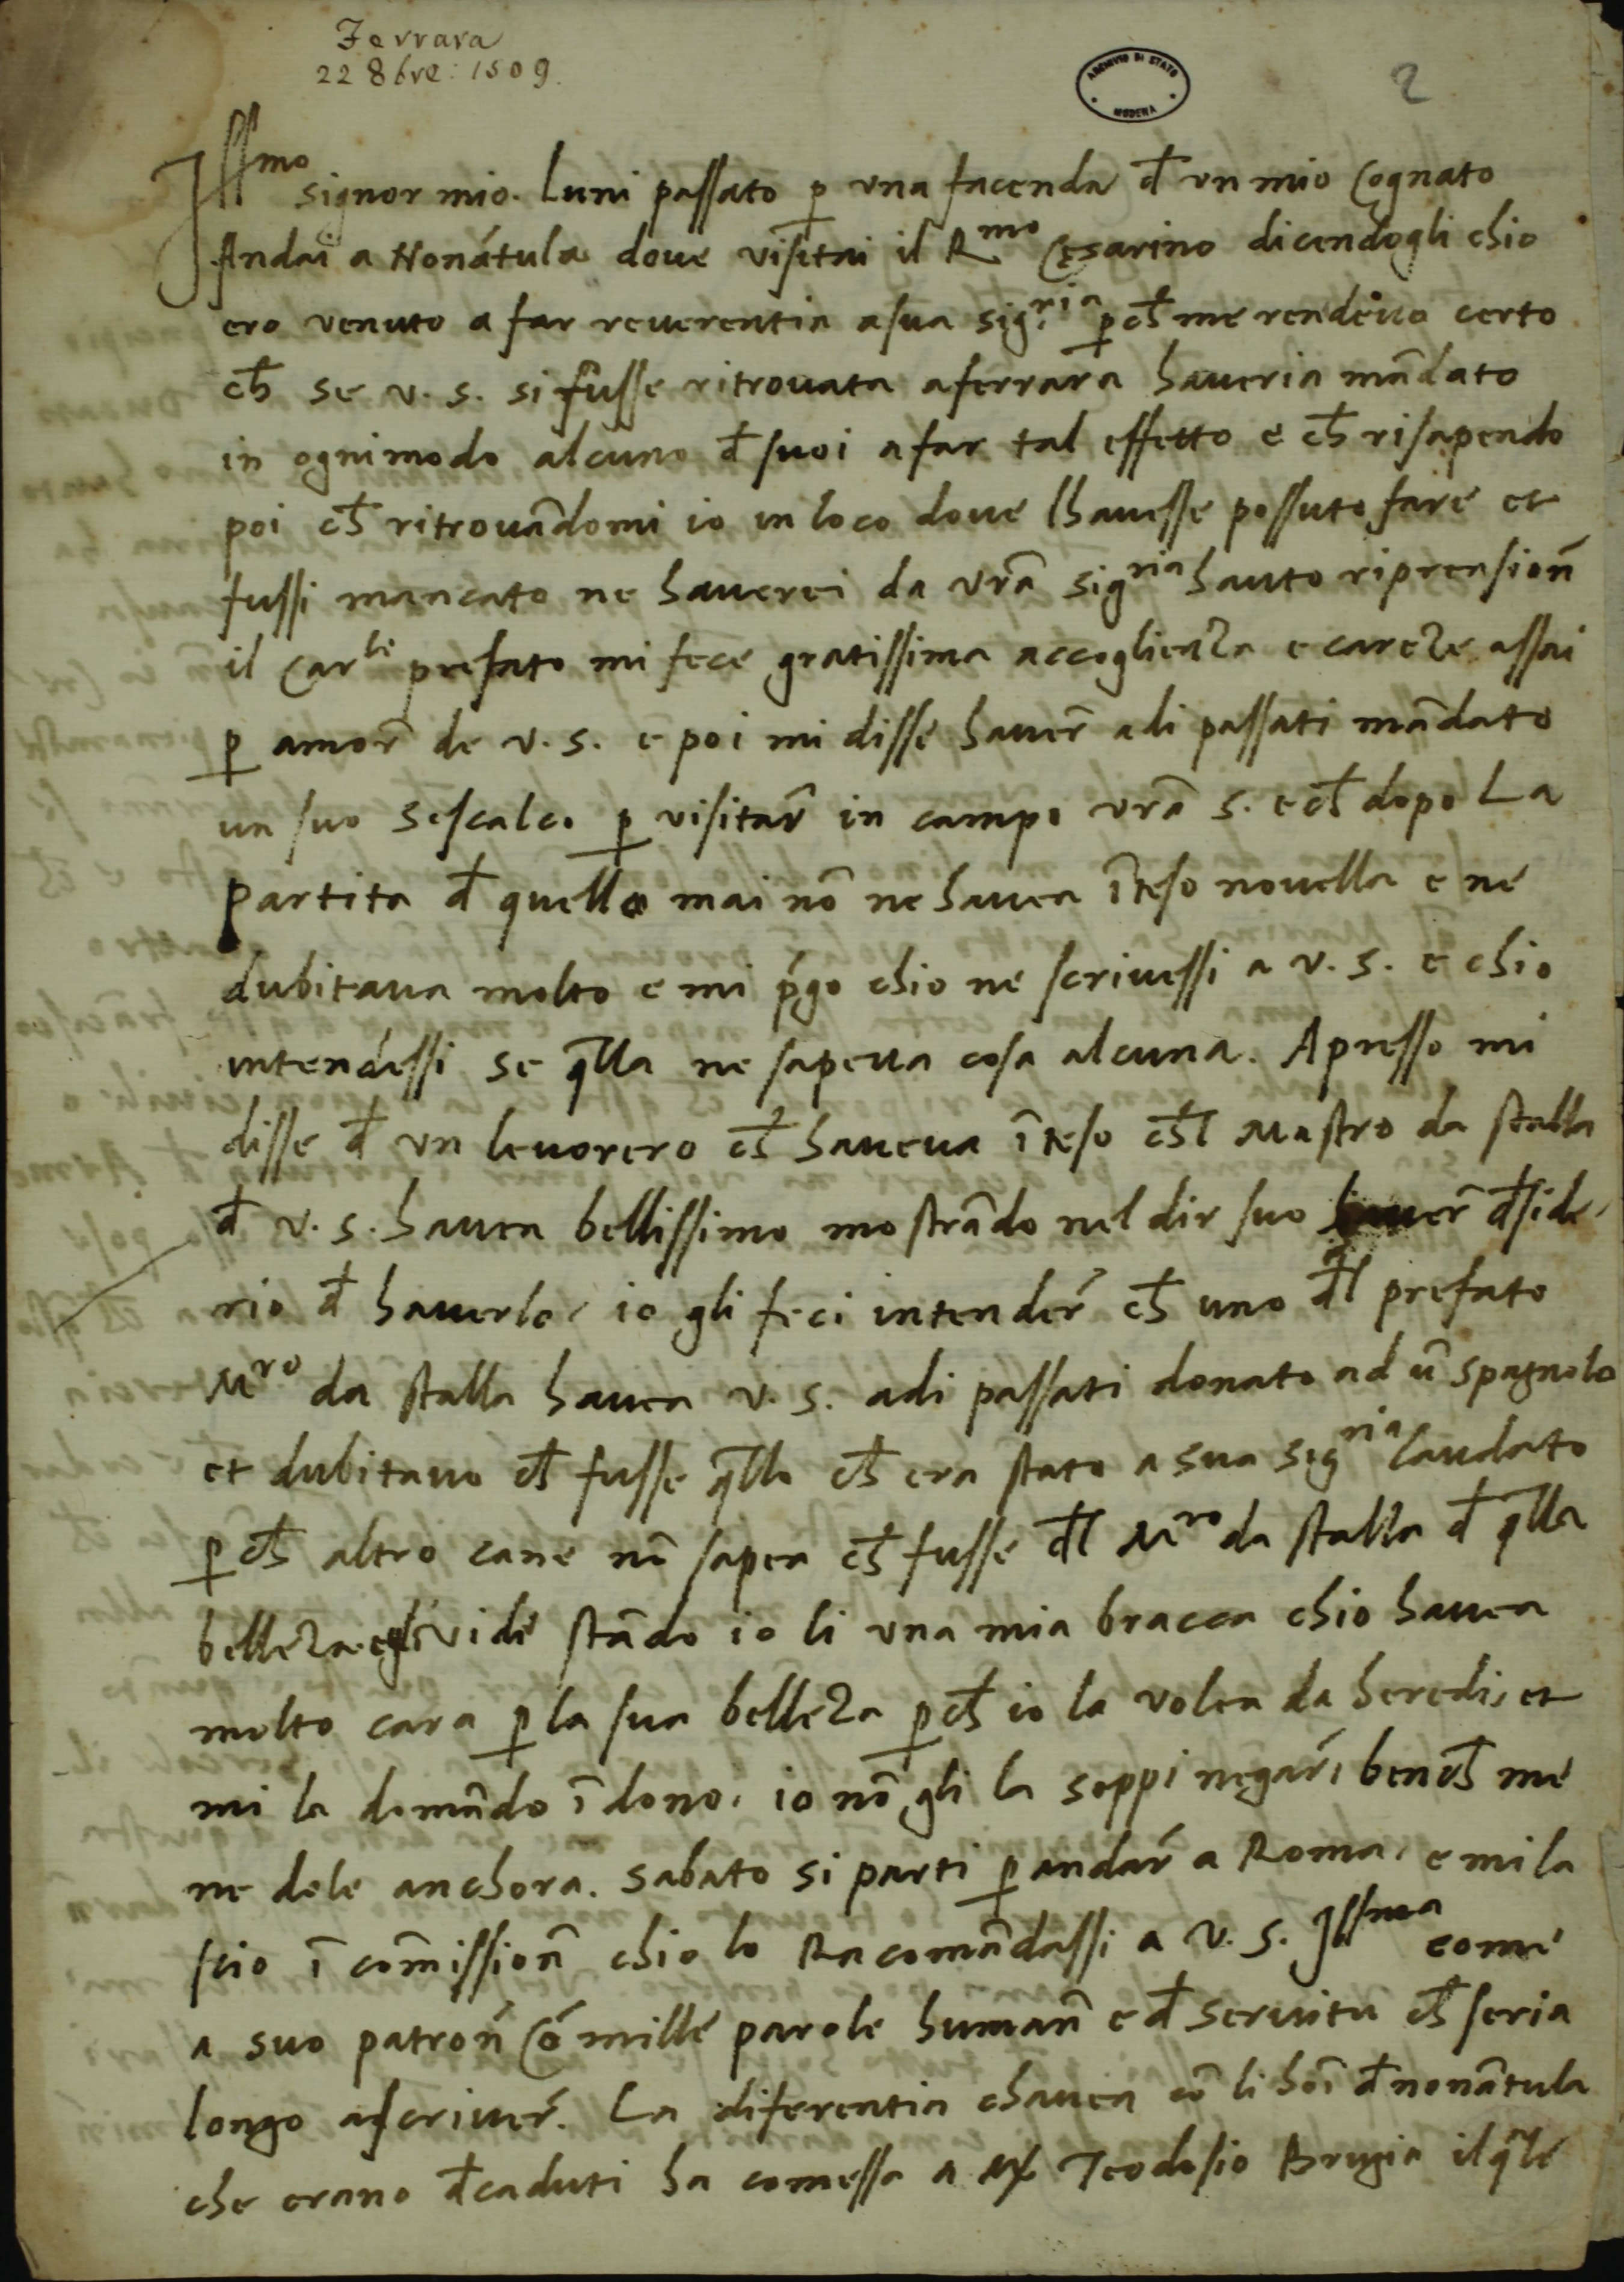 Ferrara
22 8bre: 1509.
ARCHIVIO DI STATO
MODENA
2
Illmo signor mio. Luni passato p una facenda đ un mio Cognato
Andai a Nonátula doue visitai il Rmo Cęsarino dicendogli chio
ero venuto a far reuerentia a sua sigria pch̄ me rendeuo certo
ch̄ se v. s. si fusse ritrouata a ferrara haueria mādato
in ogni modo alcuno đ suoi a far tal effetto e ch̄ risapendo
poi ch̄ ritrouādomi io in loco doue lhauesse possuto fare et
fussi mancato ne hauerei da vrā sigria hauto riprensioñ
il Carli prefato mi fece gratissima accoglienza e careze assai
p amor̄ de v. s. e poi mi disse hauer̄ adi passati mādato
un suo sescalco p visitar̄ in campo vrā s. e ch̄ dopo La
partita đ quello mai nō ne hauea īteso nouella e ne
dubitaua molto e mi p̄go chio ne scriuessi a v. s. e chio
intendessi se q̄lla ne sapeua cosa alcuna. Apresso mi
disse đ un leuorero ch̄ haueua īteso ch̄l Mastro da stalla
đ v. s. hauea bellissimo mostrādo nel dir suo hauer̄ đside
rio đ hauerlo, io gli feci intender̄ ch̄ uno đl prefato
Mro da stalla hauea v. s. adi passati donato ad ū spagnolo
et dubitauo ch̄ fusse q̄llo ch̄ era stato a sua sigria laudato
pch̄ altro cane nō sapea ch̄ fusse đl Mro da stalla đ q̄lla
belleza. egli vide stādo io li una mia bracca chio hauea
molto cara p la sua belleza pch̄ io la volea da heredi, et
mi la domādo ī dono. io nō gli la seppi negar̄, bench̄ me
ne dole anchora. sabato si parti p andar̄ a Roma, e mi la
scio ī cōmissioñ chio lo Racomādassi a v. s. Illma come
a suo patroñ Cō mille parole humañ e đ seruitu ch̄ seria
longo a scriuer̄. La diferentia chauea cō li hoī đ nonātula
che erano đcaduti ha comessa a M Teodosio Brugia il q̄le